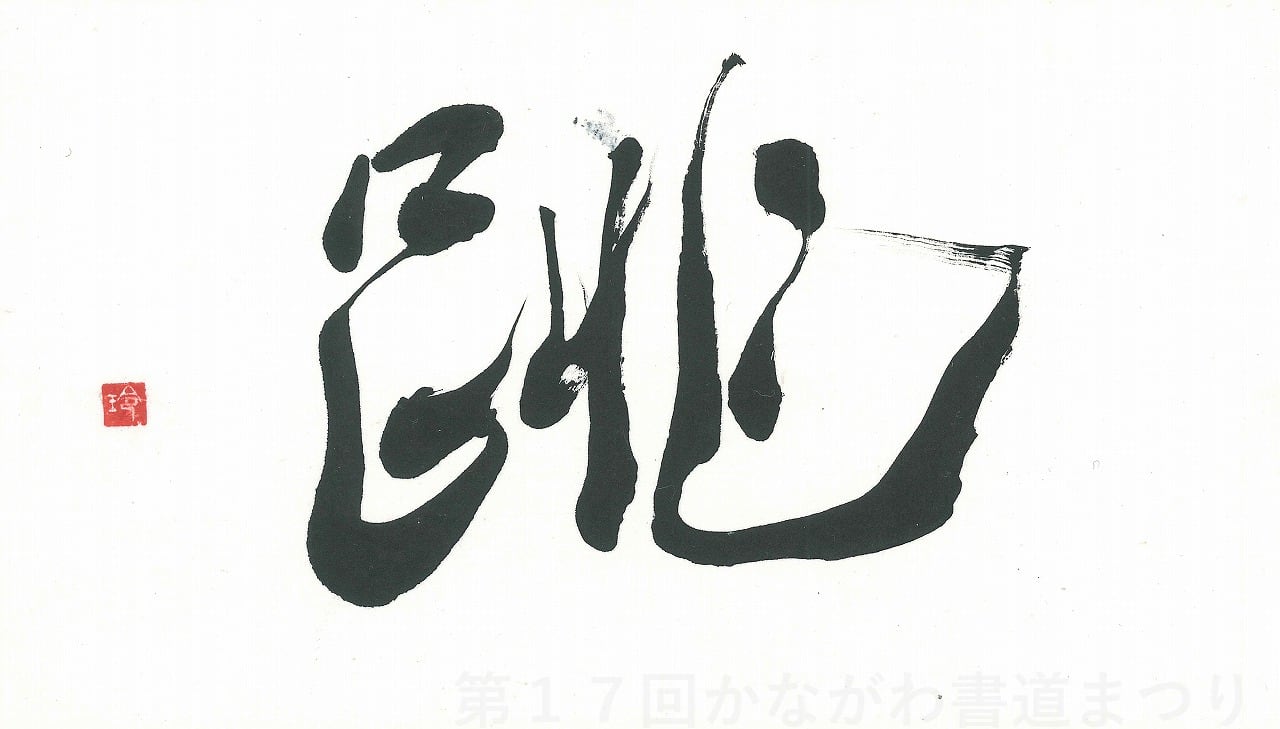 跳
玲
第17回かながわ書道まつり